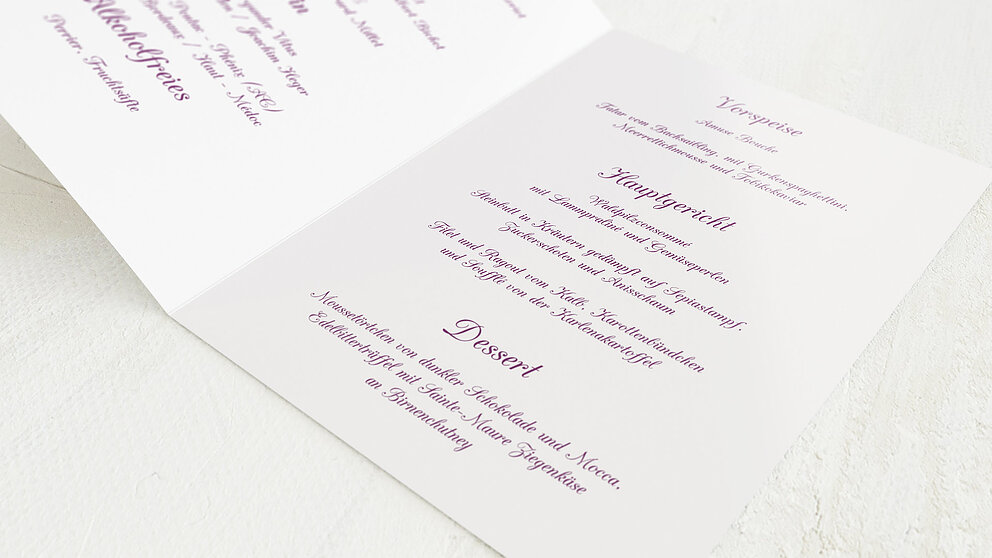 Alkoholfreies
Perrier, Fruchtsäfte
Joachim Heger
Phénix (AC)
Bordeaux / Haut - Médoc
Vorspeise
Amuse Bouche
Tatar vom Bachsaibling, mit Gurkenspaghettini,
Meerrettichmousse und Tobikokaviar
Hauptgericht
Waldpilzconsommé
mit Lammpraliné und Gemüseperlen
Steinbutt in Kräutern gedämpft auf Sepiastampf,
Zuckerschoten und Anisschaum
Filet und Ragout vom Kalb, Karottenbündchen
und Soufflé von der Karlenakartoffel
Dessert
Moussetörtchen von dunkler Schokolade und Mocca,
Edelbittertrüffel mit Sainte-Maure Ziegenkäse
an Birnenchutney